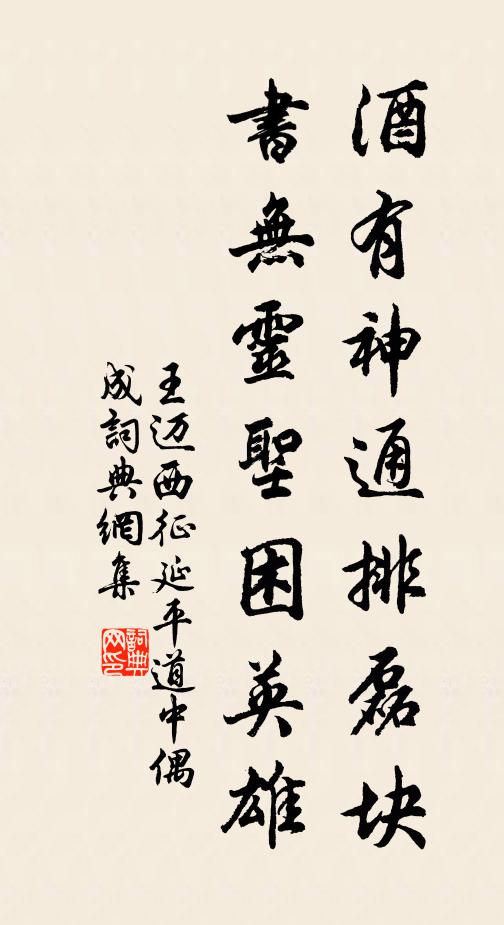 酒有神通排磊块
書無靈聖困英雄
王迈西征延平道中偶
成詞典網集
詞典网印